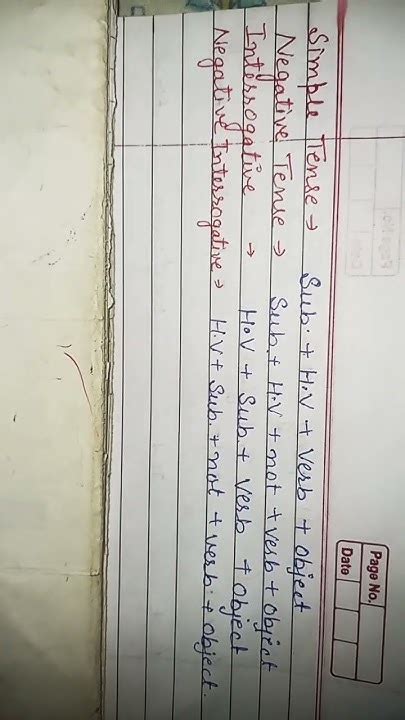 Page No.
Date
Simple Tense → Sub. + H.V + Verb + Object
Negative Tense → Sub. + H.V + not + verb + object
Interrogative → H.V + Sub. + Verb + Object
Negative Interrogative → H.V + Sub. + not + verb. + object.